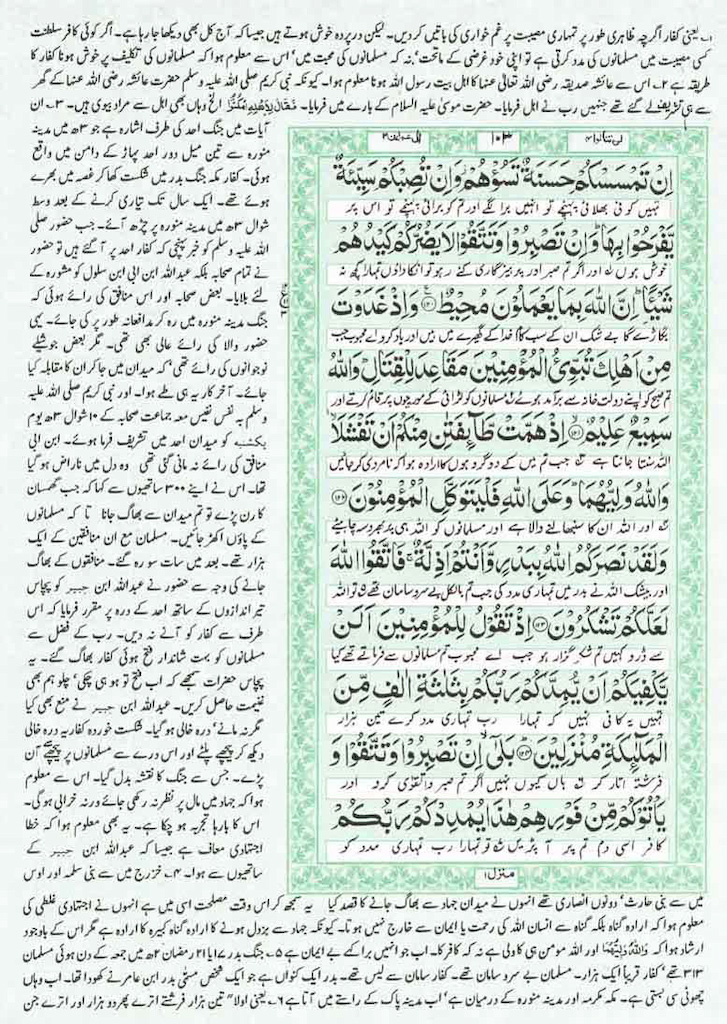 ۱۔ یعنی کفار اگرچہ ظاہری طور پر تمہاری مصیبت پر غم خواری کی باتیں کر دیں۔ لیکن در پردہ خوش ہوتے ہیں جیسا کہ آج کل بھی دیکھا جا رہا ہے۔ اگر کوئی کافر سلطنت
کسی مصیبت میں مسلمانوں کی مدد کرتی ہے تو اپنی خود غرضی کے ماتحت' نہ کہ مسلمانوں کی محبت میں' اس سے معلوم ہوا کہ مسلمانوں کی تکلیف پر خوش ہونا کفار کا
طریقہ ہے ۲۔ اس سے عائشہ صدیقہ رضی اللہ تعالیٰ عنہا کا اہل بیت رسول اللہ ہونا معلوم ہوا۔ کیونکہ نبی کریم صلی اللہ علیہ وسلم حضرت عائشہ رضی اللہ عنہا کے گھر
سے ہی تشریف لے گئے تھے جنہیں رب نے اہل فرمایا۔ حضرت موسیٰ علیہ السلام کے بارے میں فرمایا۔ فَقَالَ لِاَهْلِهِ امْكُثُوْا الخ وہاں بھی اہل سے مراد بیوی ہیں۔ ۳۔ ان
آیات میں جنگ احد کی طرف اشارہ ہے جو ۳ھ میں مدینہ
منورہ سے تین میل دور احد پہاڑ کے دامن میں واقع
ہوئی۔ کفار مکہ جنگ بدر میں شکست کھا کر غصہ میں بھرے
ہوئے تھے۔ ایک سال تک تیاری کرنے کے بعد وسط
شوال ۳ھ میں مدینہ منورہ پر چڑھ آئے۔ جب حضور صلی
اللہ علیہ وسلم کو خبر پہنچی کہ کفار احد پر آ گئے ہیں تو حضور
نے تمام صحابہ بلکہ عبداللہ ابن ابی ابن سلول کو مشورہ کے
لئے بلایا۔ بعض صحابہ اور اس منافق کی رائے ہوئی کہ
جنگ مدینہ منورہ میں رہ کر مدافعانہ طور پر کی جائے۔ یہی
حضور والا کی رائے عالی بھی تھی۔ مگر بعض جوشیلے
نوجوانوں کی رائے تھی' کہ میدان میں جا کر ان کا مقابلہ کیا
جائے۔ آخر کار یہ ہی طے ہوا۔ اور نبی کریم صلی اللہ علیہ
وسلم بہ نفس نفیس معہ جماعت صحابہ کے ۱۰ شوال ۳ھ یوم
یکشنبہ کو میدان احد میں تشریف فرما ہوئے۔ ابن ابی
منافق کی رائے نہ مانی گئی تھی وہ دل میں ناراض ہو گیا
تھا۔ اس نے اپنے ۳۰۰ ساتھیوں سے کہا کہ جب گھمسان
کا رن پڑے تو تم میدان سے بھاگ جانا تا کہ مسلمانوں
کے پاؤں اکھڑ جائیں۔ مسلمان مع ان منافقین کے ایک
ہزار تھے۔ بعد میں سات سو رہ گئے۔ منافقوں کے بھاگ
جانے کی وجہ سے حضور نے عبداللہ ابن جبیر کو پچاس
تیر اندازوں کے ساتھ احد کے درہ پر مقرر فرمایا کہ اس
طرف سے کفار کو آنے نہ دیں۔ رب کے فضل سے
مسلمانوں کو بہت شاندار فتح ہوئی کفار بھاگ گئے۔ یہ
پچاس حضرات سمجھے کہ اب فتح تو ہو ہی چکی' چلو ہم بھی
غنیمت حاصل کریں۔ عبداللہ ابن جبیر نے منع بھی کیا
مگر نہ مانے' درہ خالی ہو گیا۔ شکست خوردہ کفار یہ درہ خالی
دیکھ کر پیچھے پلٹے اور اس درے سے مسلمانوں پر پیچھے آن
پڑے۔ جس سے جنگ کا نقشہ بدل گیا۔ اس سے معلوم
ہوا کہ جہاد میں مال پر نظر نہ رکھی جائے ورنہ خرابی ہو گی۔
اس کا بارہا تجربہ ہو چکا ہے۔ یہ بھی معلوم ہوا کہ خطا
اجتہادی معاف ہے جیسا کہ عبداللہ ابن جبیر کے
ساتھیوں سے ہوا۔ ۴۔ خزرج میں سے بنی سلمہ اور اوس
لن تنالوا ۴
۱۰۳
اٰل عمرٰن ۳
اِنْ تَمْسَسْكُمْ حَسَنَةٌ تَسُؤْهُمْ وَاِنْ تُصِبْكُمْ سَيِّئَةٌ
تمہیں کوئی بھلائی پہنچے تو انہیں برا لگے اور تم کو برائی پہنچے تو اس پر
يَّفْرَحُوْا بِهَا وَاِنْ تَصْبِرُوْا وَتَتَّقُوْا لَا يَضُرُّكُمْ كَيْدُهُمْ
خوش ہوں لہ اور اگر تم صبر اور پرہیزگاری کئے رہو تو ان کا داؤں تمہارا کچھ نہ
شَيْـًٔا اِنَّ اللّٰهَ بِمَا يَعْمَلُوْنَ مُحِيْطٌ ۝۱۲۰ وَاِذْ غَدَوْتَ
بگاڑے گا بے شک ان کے سب کام خدا کے گھیرے میں ہیں اور یاد کرو اے محبوب جب
مِنْ اَهْلِكَ تُبَوِّئُ الْمُؤْمِنِيْنَ مَقَاعِدَ لِلْقِتَالِ وَاللّٰهُ
تم صبح کو اپنے دولت خانہ سے برآمد ہوئے مسلمانوں کو لڑائی کے مورچوں پر قائم کرتے اور
سَمِيْعٌ عَلِيْمٌ ۝۱۲۱ اِذْ هَمَّتْ طَّآئِفَتٰنِ مِنْكُمْ اَنْ تَفْشَلَا
اللہ سنتا جانتا ہے جب تم میں کے دو گروہوں کا ارادہ ہوا کہ نامردی کر جائیں
وَاللّٰهُ وَلِيُّهُمَا وَعَلَى اللّٰهِ فَلْيَتَوَكَّلِ الْمُؤْمِنُوْنَ ۝۱۲۲
اور اللہ ان کا سنبھالنے والا ہے اور مسلمانوں کو اللہ ہی پر بھروسہ چاہیئے
وَلَقَدْ نَصَرَكُمُ اللّٰهُ بِبَدْرٍ وَّاَنْتُمْ اَذِلَّةٌ فَاتَّقُوا اللّٰهَ
اور بیشک اللہ نے بدر میں تمہاری مدد کی جب تم بالکل بے سر و سامان تھے تو اللہ
لَعَلَّكُمْ تَشْكُرُوْنَ ۝۱۲۳ اِذْ تَقُوْلُ لِلْمُؤْمِنِيْنَ اَلَنْ
سے ڈرو کہیں تم شکر گزار ہو جب اے محبوب تم مسلمانوں سے فرماتے تھے کیا
يَّكْفِيَكُمْ اَنْ يُّمِدَّكُمْ رَبُّكُمْ بِثَلٰثَةِ اٰلٰفٍ مِّنَ
تمہیں یہ کافی نہیں کہ تمہارا رب تمہاری مدد کرے تین ہزار
الْمَلٰٓئِكَةِ مُنْزَلِيْنَ ۝۱۲۴ بَلٰٓى اِنْ تَصْبِرُوْا وَتَتَّقُوْا وَ
فرشتہ اتار کر ہاں کیوں نہیں اگر تم صبر و تقویٰ کرو اور
يَاْتُوْكُمْ مِّنْ فَوْرِهِمْ هٰذَا يُمْدِدْكُمْ رَبُّكُمْ
کافر اسی دم تم پر آ پڑیں تو تمہارا رب تمہاری مدد کو
منزل ۱
میں سے بنی حارث' دونوں انصاری تھے انہوں نے میدان جہاد سے بھاگ جانے کا قصد کیا یہ سمجھ کر اس وقت مصلحت اسی میں ہے انہوں نے اجتہادی غلطی کی
معلوم ہوا کہ ارادہ گناہ بلکہ گناہ سے انسان اللہ کی رحمت یا ایمان سے خارج نہیں ہوتا۔ کیونکہ جہاد سے بزدل ہونے کا ارادہ گناہ کبیرہ کا ارادہ ہے مگر اس کے باوجود
ارشاد ہوا کہ وَاللّٰهُ وَلِيُّهُمَا اور اللہ مومن ہی کا ولی ہے نہ کہ کافر کا۔ اب جو انہیں برا کہے بے ایمان ہے ۵۔ جنگ بدر ۱۷ یا ۲۱ رمضان ۲ھ میں جمعہ کے دن ہوئی مسلمان
۳۱۳ تھے' کفار قریباً ایک ہزار۔ مسلمان بے سر و سامان تھے۔ کفار سامان سے لیس تھے۔ بدر ایک کنواں ہے جو ایک شخص مسمیٰ بدر ابن عامر نے کھودا تھا۔ اب وہاں
چھوٹی سی بستی ہے۔ مکہ مکرمہ اور مدینہ منورہ کے درمیان ہے' اب مدینہ پاک کے راستے میں آتا ہے ۶۔ یعنی اولاً" تین ہزار فرشتے اترے پھر دو ہزار اور اترے جن